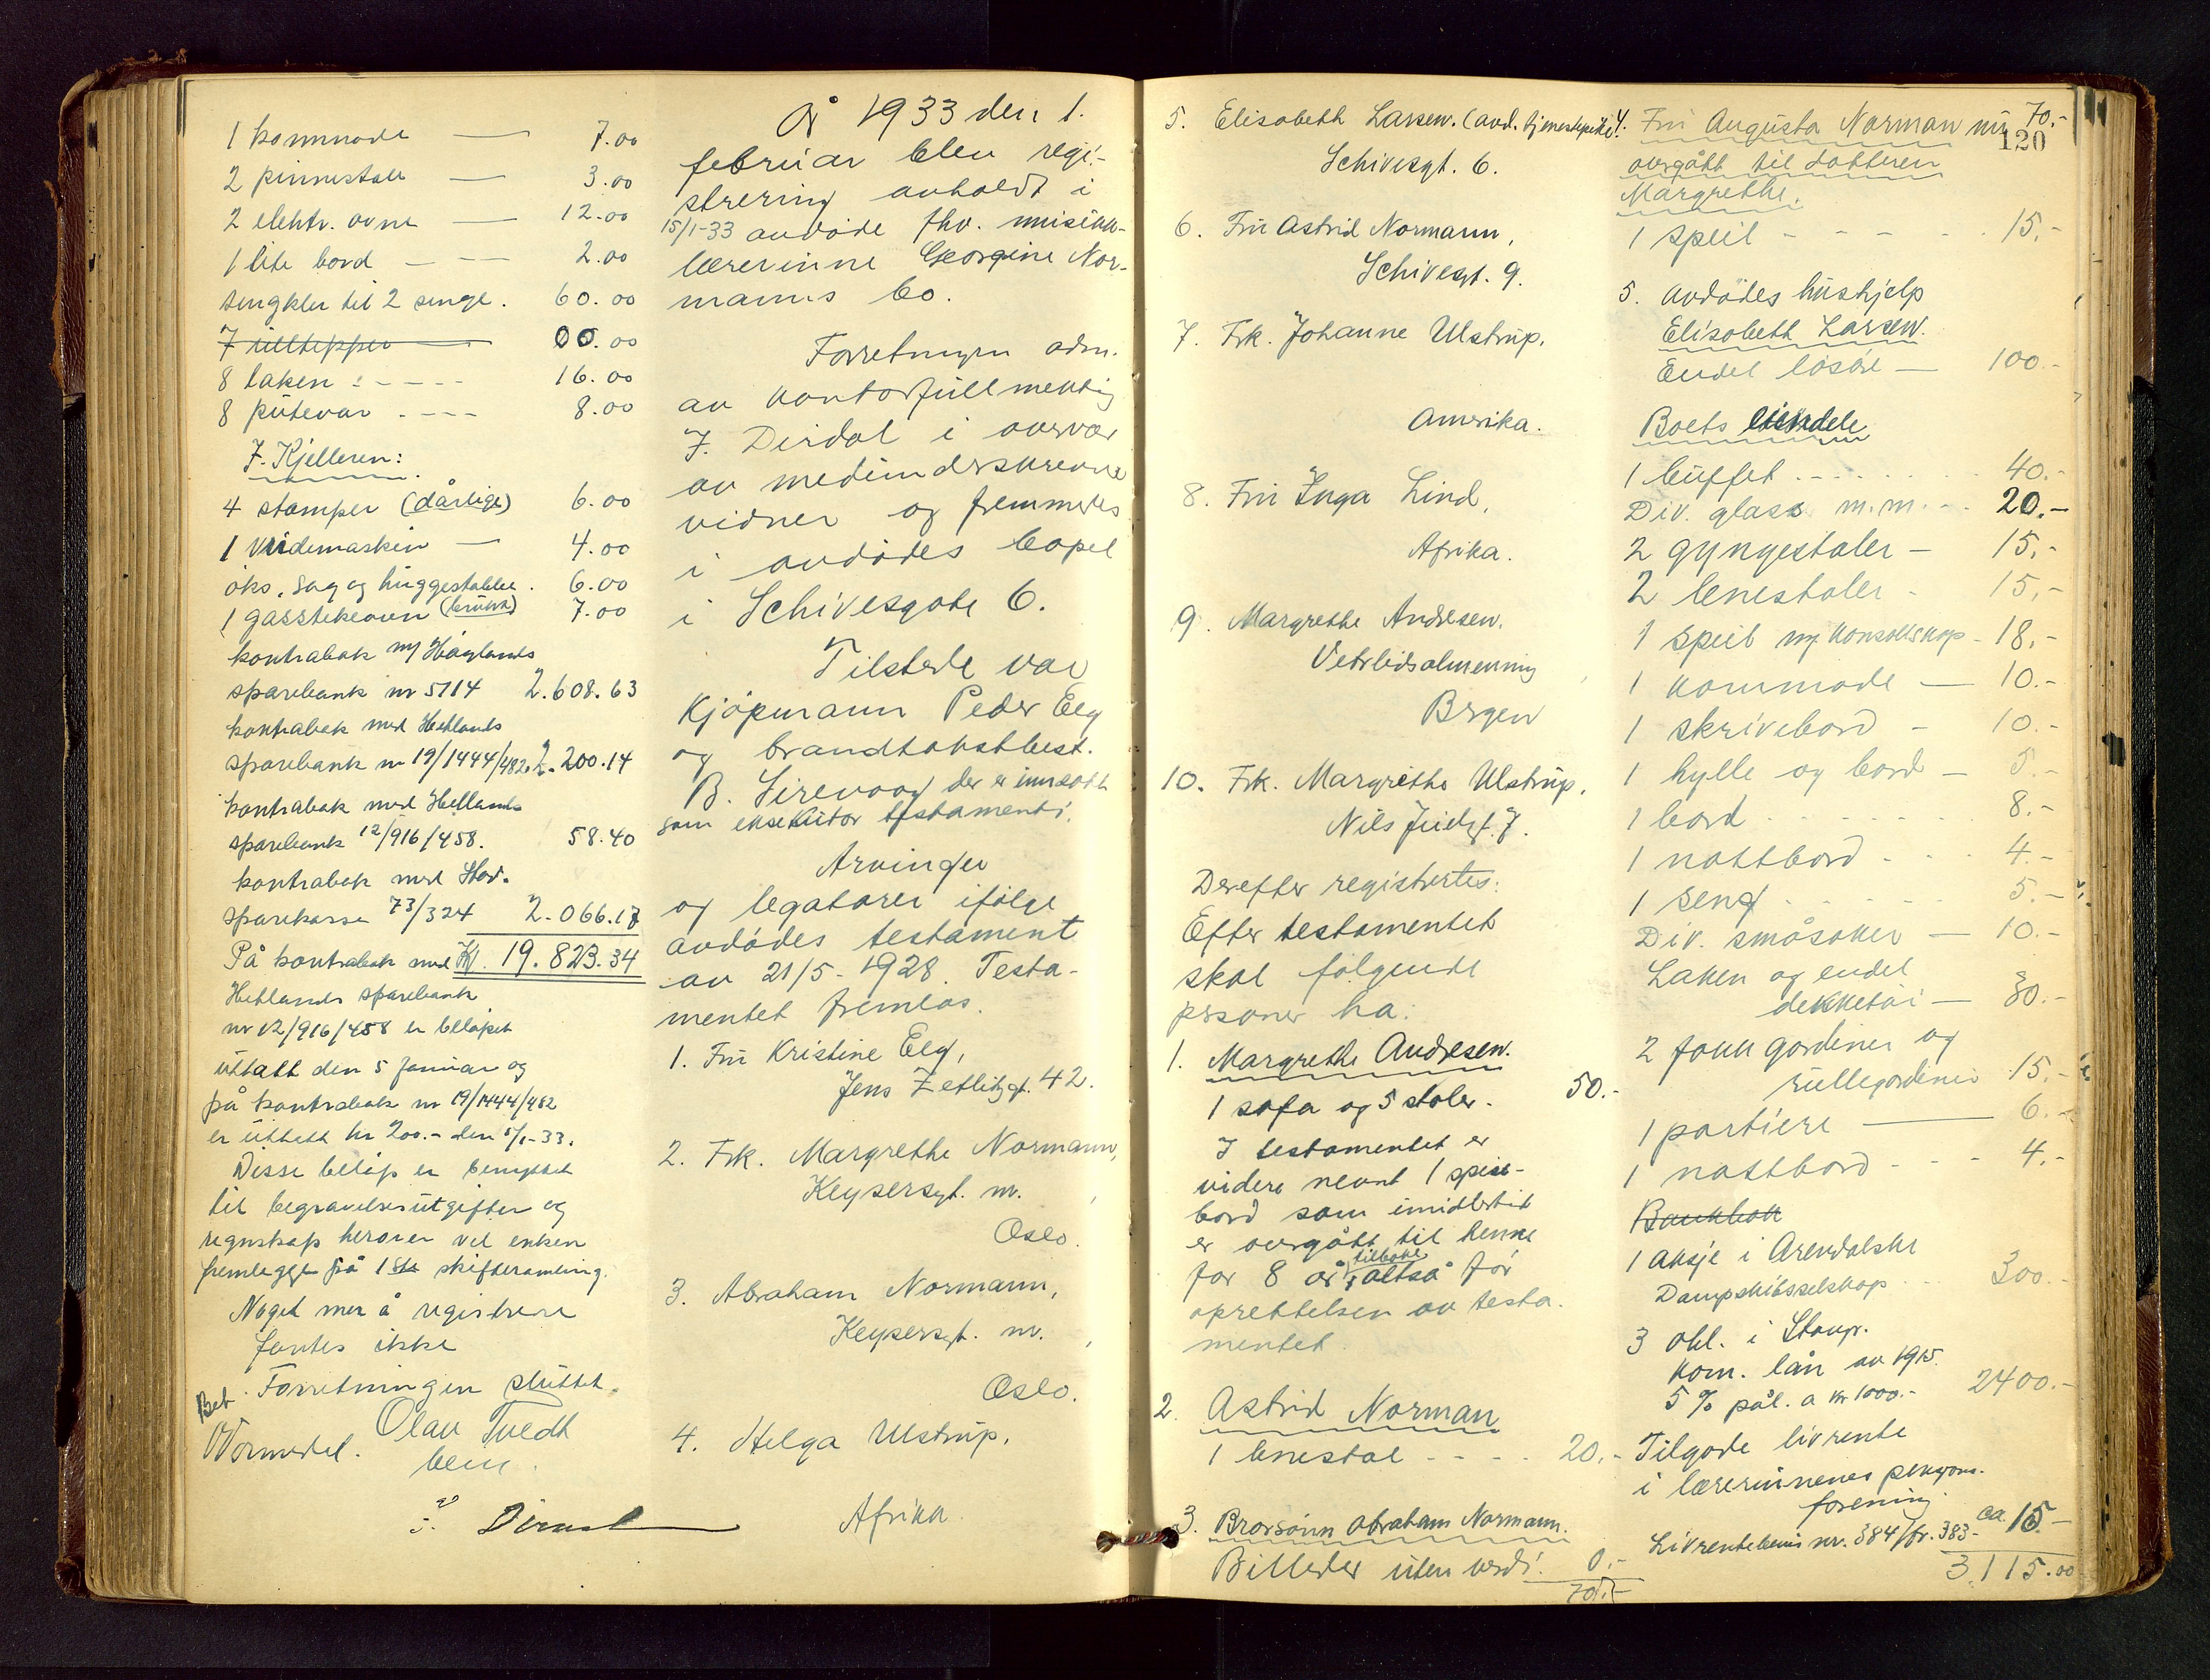 1 kommode — 7.00
2 pinnestole — 3.00
2 elektr. ovne — 12.00
1 lite bord — — 2.00
sengkler til 2 senge. 60.00
7 ulltepper 00.00
8 laken - - - - 16.00
8 putevar - - - - 8.00
I. Kjelleren:
4 stamper (dårlige) 6.00
1 Vridemaskin — 4.00
öks, sag og huggestabbe. 6.00
1 gasstekeovn (brukt) 7.00
kontrabok m/ Høylands
sparebank nr 5714 2.608.63
kontrabok med Hetlands
sparebank nr 19/1444/482. 2.200.14
kontrabok med Hetlands
sparebank 12/916/458. 58.40
kontrabok med Stav.
sparekasse 73/324 2.066.17
På kontrabok med Kr. 19.823.34
Hetlands sparebank
nr 12/916/458 er beløpet
uttatt den 5 januar og
på kontrabok nr 19/1444/482
er uttatt kr 200.- den 5/1-33.
Disse beløp er benyttet
til begravelsesutgifter og
regnskap herover vil enken
fremlegge på 1ste skiftesamling.
Noget mer å registrere
fantes ikke
Forretningen sluttet.
Bet.
Olav Tvedt
bem.
Dirdal
År 1933 den 1.
februar blev regi-
strering avholdt i
15/1-33 avdöde fhv. musikk-
lærerinne Georgine Nor-
manns bo.
Forretningen adm.
av kontorfullmektig
J. Dirdal i overvær
av medunderskrevne
vidner og fremmedes
i avdödes bopel
i Schivesgate 6.
Tilstede var
Kjöpmann Peder Eeg
og brandtakstbest.
B. Sirevaag der er innsatt
som eksekutor testamenti.
Arvinger
og legatarer ifölge
avdödes testament
av 21/5-1928. Testa-
mentet fremlaa.
1. Fru Kristine Eeg,
Jens Zetlitzgt. 42.
2. Frk. Margrethe Normann,
Keysersgt. nr.   ,
Oslo.
3. Abraham Normann,
Keysersgt. nr.   ,
Oslo.
4. Helga Ulstrup,
Afrika
5. Elisabeth Larsen. (avd. tjenestepike)
Schivesgt. 6.
6. Fru Astrid Normann,
Schivesgt. 9.
7. Frk. Johanne Ulstrup,
Amerika.
8. Fru Inga Lind,
Afrika.
9. Margrethe Andresen.
Vetrlidsalmenning   ,
Bergen
10. Frk. Margrethe Ulstrup,
Nils Juelsgt. 7.
Derefter registrertes:
Efter testamentet
skal fölgende
personer ha:
1. Margrethe Andresen.
1 sofa og 5 stoler. 50.-
I testamentet er
videre nevnt 1 spise-
bord som imidlertid
er overgått til henne
for 8 år tilbake, altså før
oprettelsen av testa-
mentet
2. Astrid Norman
1 lenestol - - - - 20.-
3. Brorsönn Abraham Normann.
Billeder uten verdi. 0.-
70.-
70.-
120
4. Fru Augusta Norman nu
overgått til datteren
Margrethe.
1 speil - - - - - 15.-
5. avdödes hushjelp
Elisabeth Larsen.
Endel lösöre — 100.-
Boets eiendele
1 buffet - - - - 40.-
Div. glass m.m. - - 20.-
2 gyngestoler — 15.-
2 lenestoler - 15.-
1 speil m/ konsollskap - 18.-
1 kommode — 10.-
1 skrivebord - 10.-
1 hylle og bord — 5.-
1 bord - - - - - 8.-
1 nattbord - - - - 4.-
1 seng - - - - - 5.-
Div. småsaker — 10.-
Laken og endel
dekketöi — 30.-
2 fann gardiner og
rullegardiner 15.-
1 portiere — 6.-
1 nattbord - - - 4.-
Bankbok
1 aksje i Arendalske
Dampskibsselskap - - 300.-
3 obl. i Stavgr.
kom. lån av 1915.
5 % pål. a kr 1000.- 2400.-
Tilgode livrente
i lærerinnenes pensjons-
forening ca 15.-
Livrentebevis nr. 384/fr. 383-
3.115.00